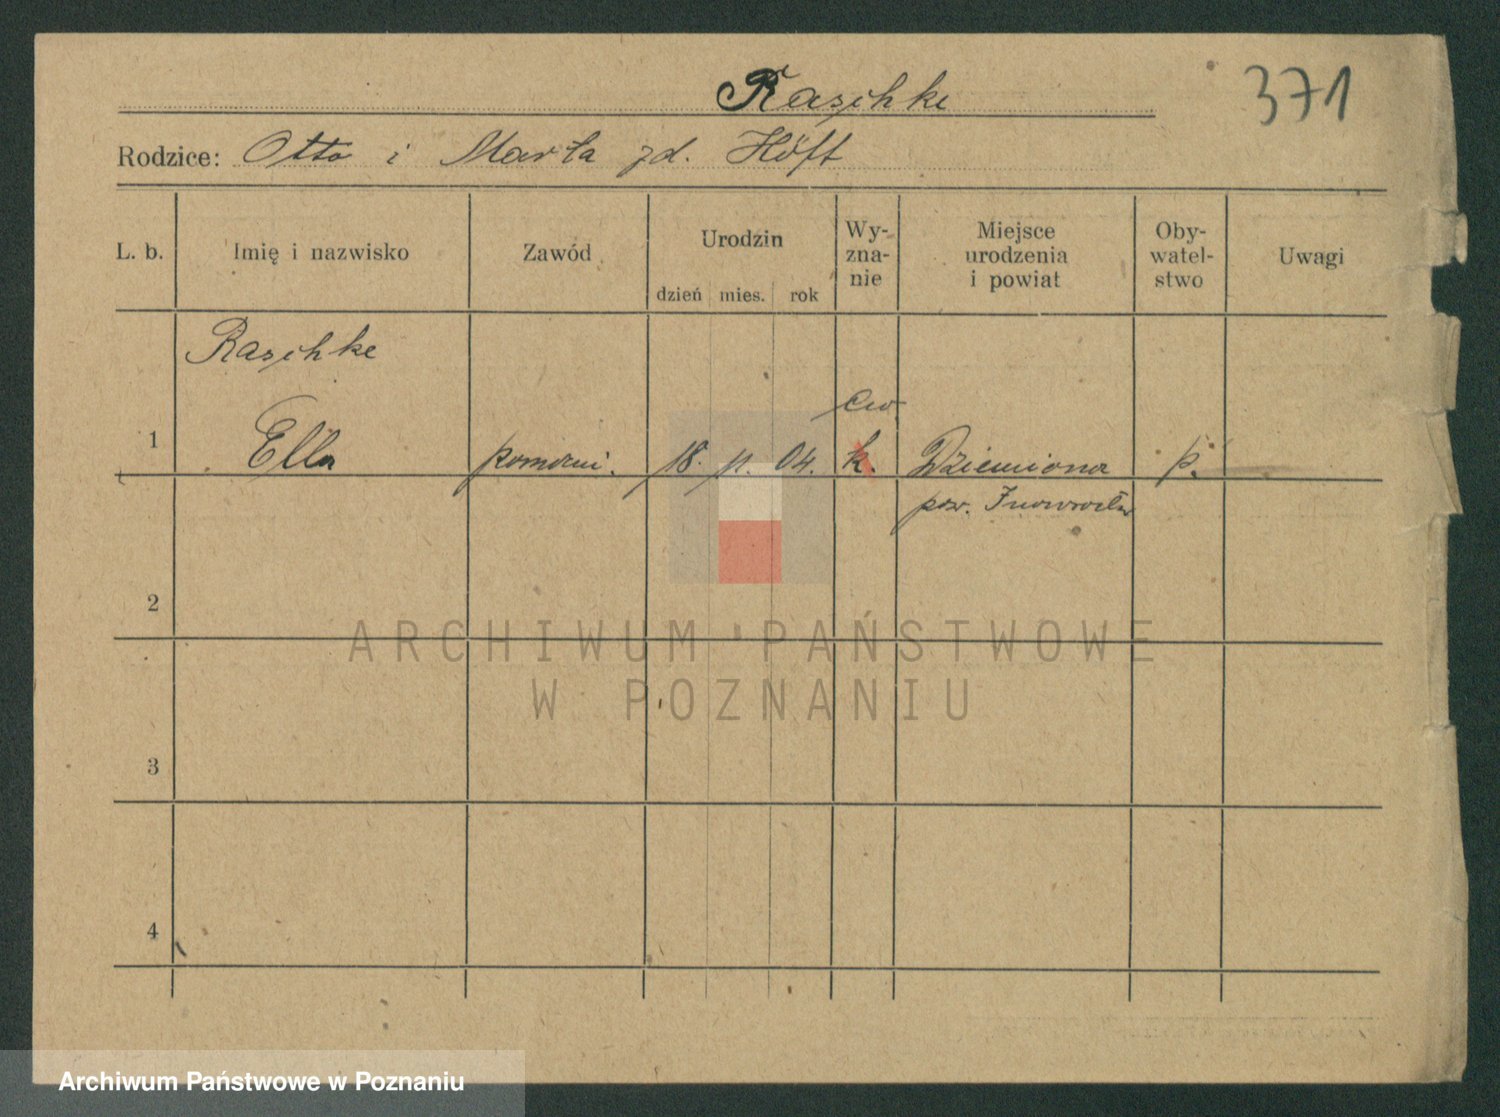 Raschke
371
Rodzice: Otto i Marta zd. Höft
L. b. Imię i nazwisko Zawód Urodzin dzień mies. rok Wy-zna-nie Miejsce urodzenia i powiat Oby-watel-stwo Uwagi
Raschke
ew.
1 Ella 18. 11. 04. k. p.
pow. Inowrocław
2
ARCHIWUM PAŃSTWOWE
W POZNANIU
3
4
Archiwum Państwowe w Poznaniu